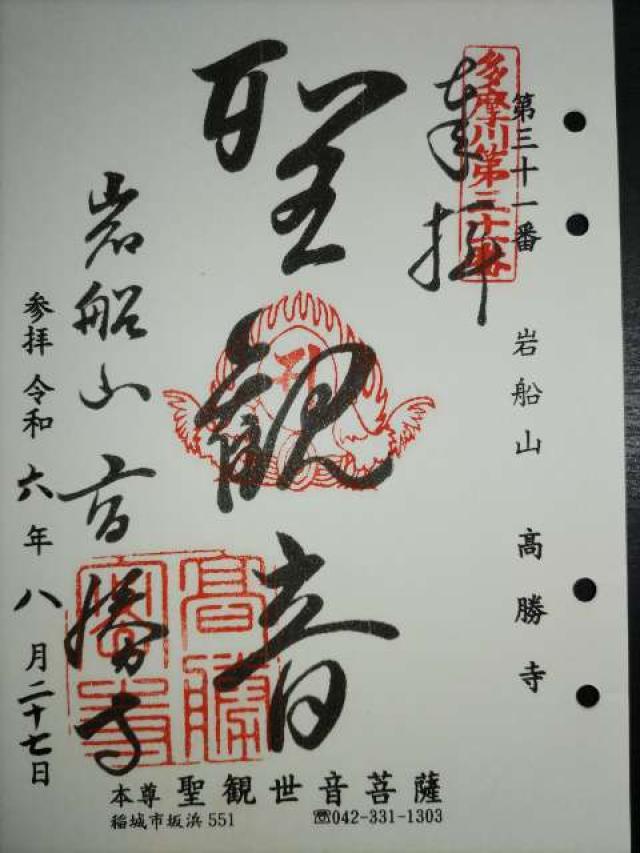 第三十一番 岩船山 高勝寺
多摩川第三十一番
奉拝
聖観音
岩船山高勝寺
高勝寺
参拝 令和六年八月二十七日
本尊 聖観世音菩薩
稲城市坂浜551 ☎042-331-1303